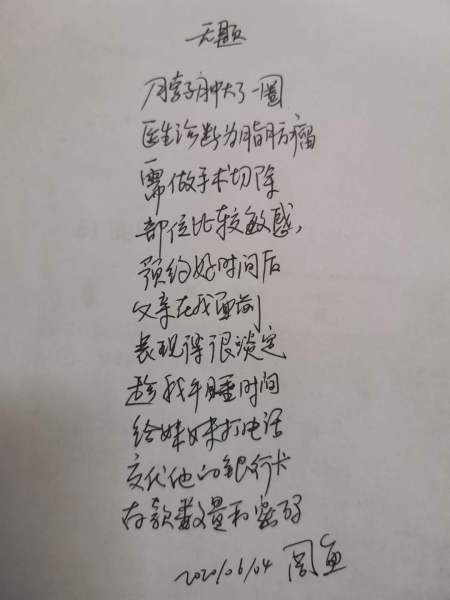 无题
脖子肿大了一圈
医生诊断为脂肪瘤
需做手术切除
部位比较敏感，
预约好时间后
父亲在我面前
表现得很淡定
趁我午睡时间
给妹妹打电话
交代他的银行卡
存款数量和密码
2020/06/04 周鱼